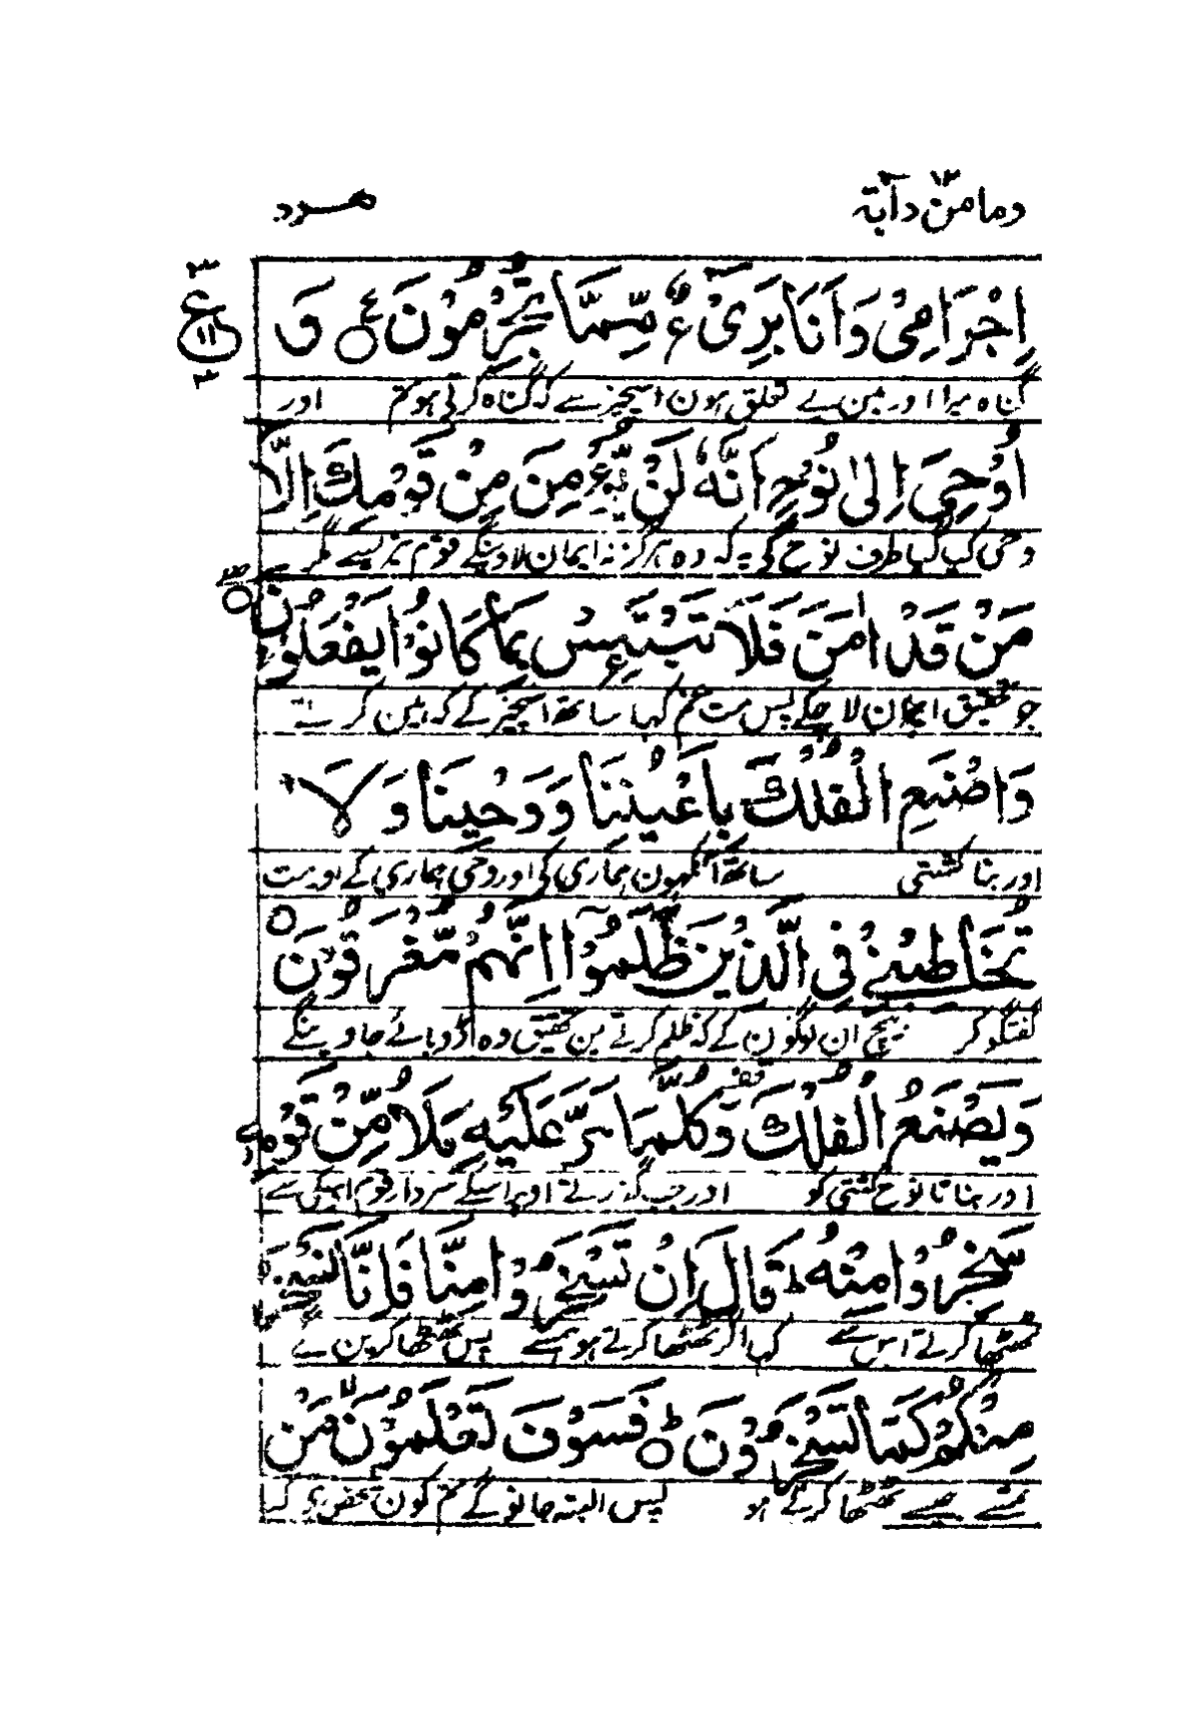 وما من دآبۃ ۱۲
ھود
۳ ع ۱۱ ۳
اِجْرَامِیْ وَاَنَا بَرِیْٓءٌ مِّمَّا تُجْرِمُوْنَ ۝ ع وَ
گناہ میرا اور مین بے تعلق ہون اسچیز سے کہ گناہ کرتی ہو تم اور
اُوْحِیَ اِلٰی نُوْحٍ اَنَّهٗ لَنْ یُّؤْمِنَ مِنْ قَوْمِكَ اِلَّا
وحی کیا گیا طرف نوح کی یہ کہ وہ ہرگز نہ ایمان لاوینگے قوم تیری سے مگر
مَنْ قَدْ اٰمَنَ فَلَا تَبْتَئِسْ بِمَا كَانُوْا یَفْعَلُوْنَ ۝
جو تحقیق ایمان لا چکے پس مت غم کہا ساتھ اسچیز کے کہ ہین کرتے
وَاصْنَعِ الْفُلْكَ بِاَعْیُنِنَا وَوَحْیِنَا وَلَا
اور بنا کشتی ساتھ آنکھون ہماری کی اور وحی ہماری کے اور مت
تُخَاطِبْنِیْ فِی الَّذِیْنَ ظَلَمُوْۤا اِنَّهُمْ مُّغْرَقُوْنَ ۝
گفتگو کر بیچ ان لوگون کے کہ ظلم کرتے ہین تحقیق وہ ڈوبائے جاوینگے
وَیَصْنَعُ الْفُلْكَ وَكُلَّمَا مَرَّ عَلَیْهِ مَلَاٌ مِّنْ قَوْمِهٖ
اور بناتا نوح کشتی کو اور جب گذرتے اوپر اسکے سردار قوم اسکی سے
سَخِرُوْا مِنْهُ ؕ قَالَ اِنْ تَسْخَرُوْا مِنَّا فَاِنَّا نَسْخَرُ
ٹھٹھا کرتے اس سے کہا اگر ٹھٹھا کرتے ہو ہمسے پس ٹھٹھا کرین گے
مِنْكُمْ كَمَا تَسْخَرُوْنَ ؕ۝ فَسَوْفَ تَعْلَمُوْنَ ۙ مَنْ
تمسے جیسے ٹھٹھا کرتے ہو پس البتہ جانوگے تم کون شخص ہی کہ